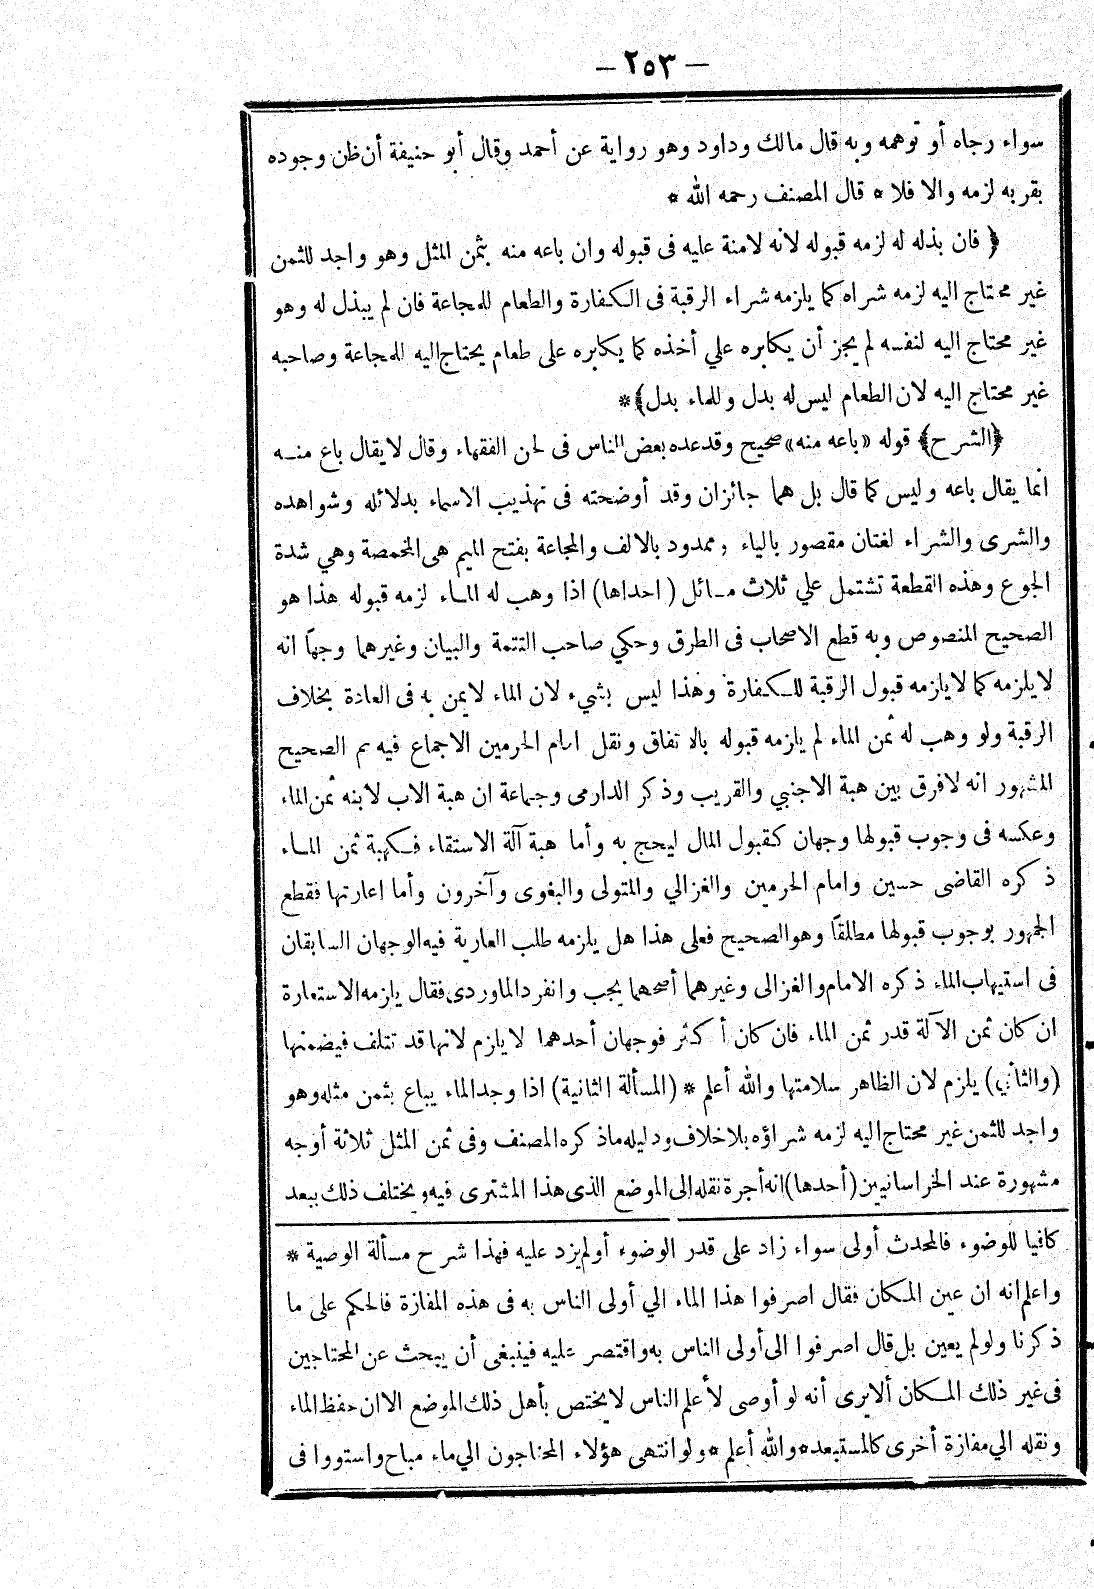 — ٢٥٣ —
سواء رجاه أو توهمه وبه قال مالك وداود وهو رواية عن أحمد وقال أبو حنيفة أن ظن وجوده
بقربه لزمه والا فلا * قال المصنف رحمه الله *
﴿ فان بذله له لزمه قبوله لانه لامنة عليه فى قبوله وان باعه منه بثمن المثل وهو واجد للثمن
غير محتاج اليه لزمه شراه كما يلزمه شراء الرقبة فى الكفارة والطعام للمجاعة فان لم يبذل له وهو
غير محتاج اليه لنفسه لم يجز أن يكابره علي أخذه كما يكابره على طعام يحتاج اليه للمجاعة وصاحبه
غير محتاج اليه لان الطعام ليس له بدل وللماء بدل ﴾ *
﴿ الشرح ﴾ قوله «باعه منه» صحيح وقد عده بعض الناس فى لحن الفقهاء وقال لايقال باع منه
انما يقال باعه وليس كما قال بل هما جائزان وقد أوضحته فى تهذيب الاسماء بدلائله وشواهده
والشرى والشراء لغتان مقصور بالياء وممدود بالالف والمجاعة بفتح الميم هى المخمصة وهي شدة
الجوع وهذه القطعة تشتمل علي ثلاث مسائل (احداها) اذا وهب له الماء لزمه قبوله هذا هو
الصحيح المنصوص وبه قطع الاصحاب فى الطرق وحكي صاحب التتمة والبيان وغيرهما وجهاً انه
لايلزمه كما لايلزمه قبول الرقبة للكفارة وهذا ليس بشيء لان الماء لايمن به فى العادة بخلاف
الرقبة ولو وهب له ثمن الماء لم يلزمه قبوله بالاتفاق ونقل امام الحرمين الاجماع فيه ثم الصحيح
المشهور انه لافرق بين هبة الاجنبي والقريب وذكر الدارمى وجماعة ان هبة الاب لابنه ثمن الماء
وعكسه فى وجوب قبولها وجهان كقبول المال ليحج به وأما هبة آلة الاستقاء فكهبة ثمن الماء
ذكره القاضى حسين وامام الحرمين والغزالي والمتولى والبغوى وآخرون وأما اعارتها فقطع
الجمهور بوجوب قبولها مطلقاً وهو الصحيح فعلى هذا هل يلزمه طلب العارية فيه الوجهان السابقان
فى استيهاب الماء ذكره الامام والغزالى وغيرهما أصحهما يجب وانفرد الماوردى فقال يلزمه الاستعارة
ان كان ثمن الآلة قدر ثمن الماء فان كان أكثر فوجهان أحدهما لايلزم لانها قد تتلف فيضمنها
(والثاني) يلزم لان الظاهر سلامتها والله أعلم * (المسألة الثانية) اذا وجد الماء يباع بثمن مثله وهو
واجد للثمن غير محتاج اليه لزمه شراؤه بلاخلاف ودليله ماذكره المصنف وفى ثمن المثل ثلاثة أوجه
مشهورة عند الخراسانيين (أحدها) انه أجرة نقله الى الموضع الذى هذا المشترى فيه ويختلف ذلك ببعد
كافيا للوضوء فالمحدث أولى سواء زاد على قدر الوضوء أولم يزد عليه فهذا شرح مسألة الوصية *
واعلم انه ان عين المكان فقال اصرفوا هذا الماء الي أولى الناس به فى هذه المفازة فالحكم على ما
ذكرنا ولو لم يعين بل قال اصرفوا الى أولى الناس به واقتصر عليه فينبغى أن يبحث عن المحتاجين
فى غير ذلك المكان ألايرى أنه لو أوصى لأعلم الناس لايختص بأهل ذلك الموضع الاان حفظ الماء
ونقله الي مفازة أخرى كالمستبعد * والله أعلم * ولو انتهى هؤلاء المحتاجون الي ماء مباح واستووا فى